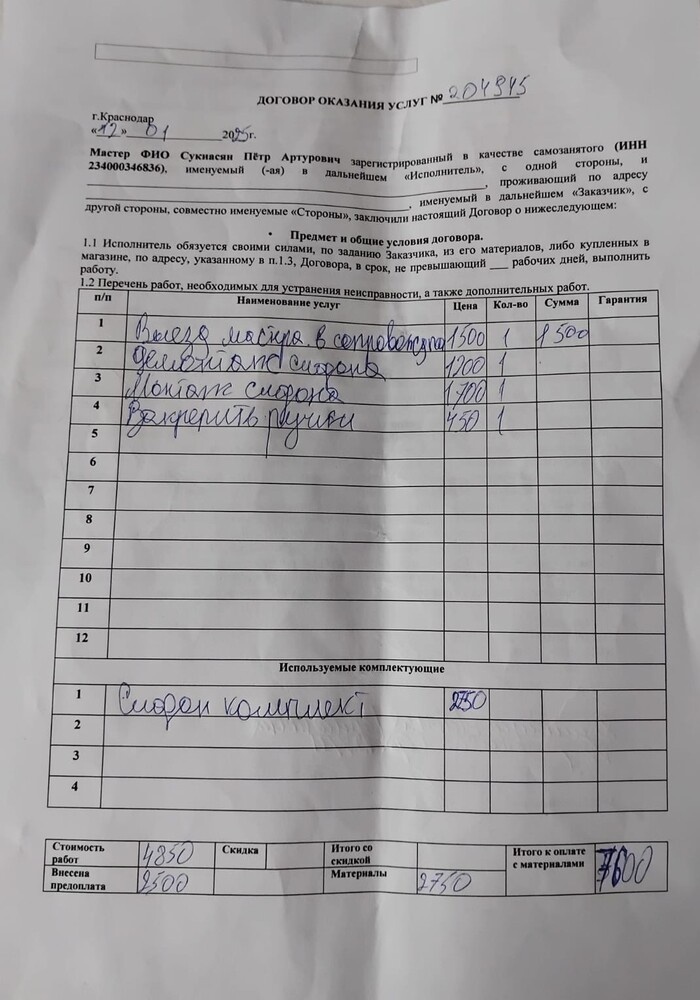 ДОГОВОР ОКАЗАНИЯ УСЛУГ № 204945
г.Краснодар
«12» 01 2025г.
Мастер ФИО Сукиасян Пётр Артурович зарегистрированный в качестве самозанятого (ИНН
234000346836), именуемый (-ая) в дальнейшем «Исполнитель», с одной стороны, и
, проживающий по адресу
, именуемый в дальнейшем «Заказчик», с
другой стороны, совместно именуемые «Стороны», заключили настоящий Договор о нижеследующем:
• Предмет и общие условия договора.
1.1 Исполнитель обязуется своими силами, по заданию Заказчика, из его материалов, либо купленных в
магазине, по адресу, указанному в п.1.3, Договора, в срок, не превышающий ___ рабочих дней, выполнить
работу.
1.2 Перечень работ, необходимых для устранения неисправности, а также дополнительных работ.
п/п Наименование услуг Цена Кол-во Сумма Гарантия
1 Выезд мастера в 1500 1 1500
2 Демонтаж сифона 1200 1
3 Монтаж сифона 1700 1
4 Закрепить ручки 450 1
5
6
7
8
9
10
11
12
Используемые комплектующие
1 Сифон комплект 2750
2
3
4
Стоимость работ 4850 Скидка Итого со скидкой Итого к оплате с материалами 7600
Внесена предоплата 2500 Материалы 2750